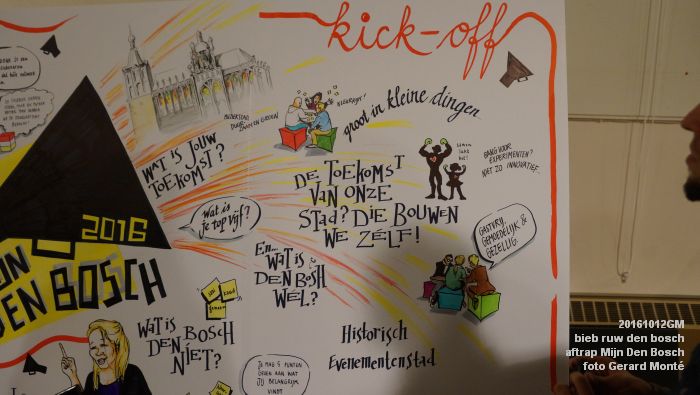 kick-off
groot in kleine dingen
WAT IS JOUW
TOEKOMST?
DE TOEKOMST
VAN ONZE
STAD? DIE BOUWEN
WE ZÉLF!
BANG VOOR
EXPERIMENTEN?
NIET ZO INNOVATIEF..
Wat is
je top vijf?
2016
DEN BOSCH
En...
WAT IS
DEN BOSH
WÉL?
GASTVRIJ,
GEMOEDELIJK &
GEZELLIG.
WAT IS
DEN BOSCH
NIET?
Historisch
Evenementenstad
JE MAG 5 PUNTEN
GEVEN AAN WAT
JIJ BELANGRIJK
VINDT
20161012GM
bieb ruw den bosch
aftrap Mijn Den Bosch
foto Gerard Monté